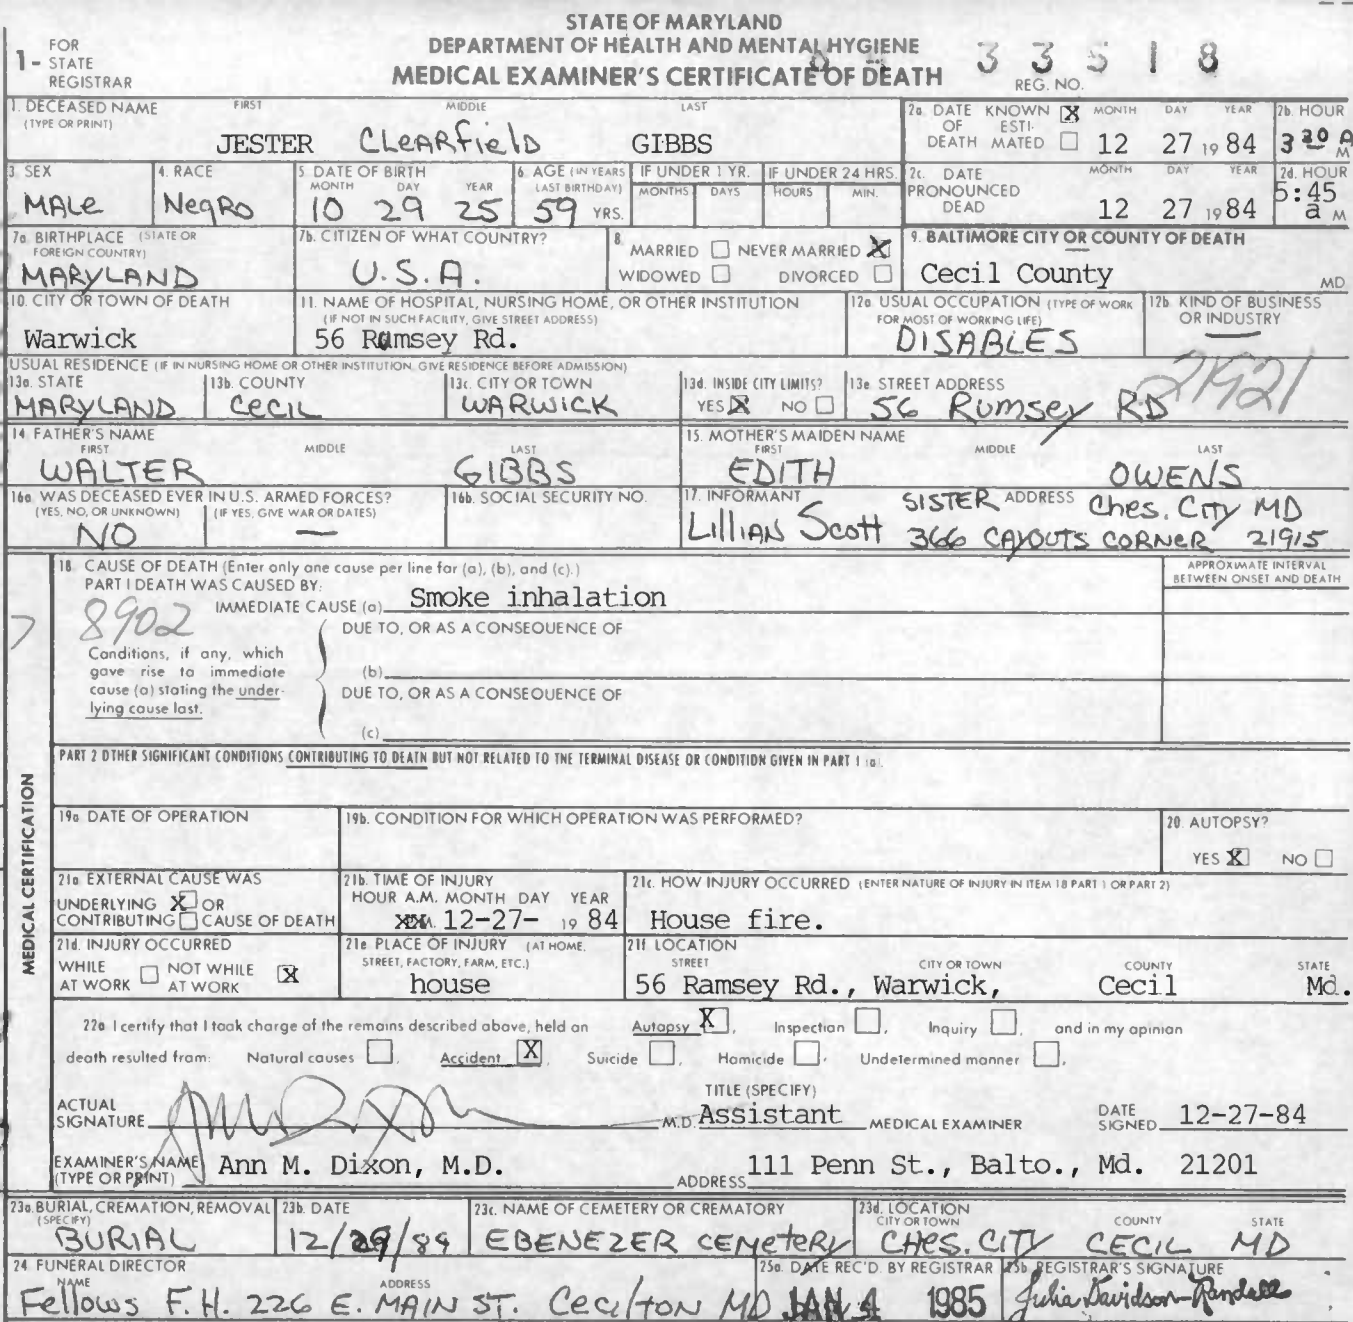 STATE OF MARYLAND
DEPARTMENT OF HEALTH AND MENTAL HYGIENE
MEDICAL EXAMINER'S CERTIFICATE OF DEATH
33518
REG. NO.
1- FOR STATE REGISTRAR
1. DECEASED NAME (TYPE OR PRINT) FIRST MIDDLE LAST
JESTER CLEARFIELD GIBBS
2a. DATE OF DEATH KNOWN X ESTIMATED MONTH DAY YEAR
12 27 1984
2b. HOUR
3 30 A M
3. SEX
MALE
4. RACE
NEGRO
5. DATE OF BIRTH MONTH DAY YEAR
10 29 25
6. AGE (IN YEARS LAST BIRTHDAY)
59 YRS.
IF UNDER 1 YR. MONTHS DAYS
IF UNDER 24 HRS. HOURS MIN.
2c. DATE PRONOUNCED DEAD MONTH DAY YEAR
12 27 1984
2d. HOUR
5:45 a M
7a. BIRTHPLACE (STATE OR FOREIGN COUNTRY)
MARYLAND
7b. CITIZEN OF WHAT COUNTRY?
U.S.A.
8. MARRIED NEVER MARRIED X
WIDOWED DIVORCED
9. BALTIMORE CITY OR COUNTY OF DEATH
Cecil County MD
10. CITY OR TOWN OF DEATH
Warwick
11. NAME OF HOSPITAL, NURSING HOME, OR OTHER INSTITUTION
(IF NOT IN SUCH FACILITY, GIVE STREET ADDRESS)
56 Rumsey Rd.
12a. USUAL OCCUPATION (TYPE OF WORK FOR MOST OF WORKING LIFE)
DISABLES
12b. KIND OF BUSINESS OR INDUSTRY
—
USUAL RESIDENCE (IF IN NURSING HOME OR OTHER INSTITUTION GIVE RESIDENCE BEFORE ADMISSION)
13a. STATE
MARYLAND
13b. COUNTY
CECIL
13c. CITY OR TOWN
WARWICK
13d. INSIDE CITY LIMITS?
YES X NO
13e. STREET ADDRESS
56 Rumsey RD
21921
14. FATHER'S NAME FIRST MIDDLE LAST
WALTER GIBBS
15. MOTHER'S MAIDEN NAME FIRST MIDDLE LAST
EDITH OWENS
16a. WAS DECEASED EVER IN U.S. ARMED FORCES?
(YES, NO, OR UNKNOWN) (IF YES, GIVE WAR OR DATES)
NO —
16b. SOCIAL SECURITY NO.
17. INFORMANT ADDRESS
Lillian Scott SISTER Ches. City MD
366 CAYOUTS CORNER 21915
18. CAUSE OF DEATH (Enter only one cause per line for (a), (b), and (c).)
PART I DEATH WAS CAUSED BY:
APPROXIMATE INTERVAL BETWEEN ONSET AND DEATH
IMMEDIATE CAUSE (a) Smoke inhalation
8902
DUE TO, OR AS A CONSEQUENCE OF
Conditions, if any, which gave rise to immediate cause (a) stating the underlying cause last.
(b)
DUE TO, OR AS A CONSEQUENCE OF
(c)
PART 2 OTHER SIGNIFICANT CONDITIONS CONTRIBUTING TO DEATH BUT NOT RELATED TO THE TERMINAL DISEASE OR CONDITION GIVEN IN PART 1 (a).
MEDICAL CERTIFICATION
19a. DATE OF OPERATION
19b. CONDITION FOR WHICH OPERATION WAS PERFORMED?
20. AUTOPSY?
YES X NO
21a. EXTERNAL CAUSE WAS
UNDERLYING X OR
CONTRIBUTING CAUSE OF DEATH
21b. TIME OF INJURY
HOUR A.M. MONTH DAY YEAR
12-27- 1984
21c. HOW INJURY OCCURRED (ENTER NATURE OF INJURY IN ITEM 18 PART 1 OR PART 2)
House fire.
21d. INJURY OCCURRED
WHILE AT WORK NOT WHILE AT WORK X
21e. PLACE OF INJURY (AT HOME, STREET, FACTORY, FARM, ETC.)
house
21f. LOCATION STREET CITY OR TOWN COUNTY STATE
56 Ramsey Rd., Warwick, Cecil Md.
22a. I certify that I took charge of the remains described above, held an Autopsy X, Inspection, Inquiry, and in my opinion
death resulted from: Natural causes, Accident X, Suicide, Homicide, Undetermined manner.
ACTUAL SIGNATURE M.D.
TITLE (SPECIFY)
Assistant MEDICAL EXAMINER
DATE SIGNED 12-27-84
EXAMINER'S NAME (TYPE OR PRINT) Ann M. Dixon, M.D.
ADDRESS 111 Penn St., Balto., Md. 21201
23a. BURIAL, CREMATION, REMOVAL (SPECIFY)
BURIAL
23b. DATE
12/29/84
23c. NAME OF CEMETERY OR CREMATORY
EBENEZER CEMETERY
23d. LOCATION CITY OR TOWN COUNTY STATE
CHES. CITY CECIL MD
24. FUNERAL DIRECTOR NAME ADDRESS
Fellows F.H. 226 E. MAIN ST. Cecilton MD
25a. DATE REC'D. BY REGISTRAR
JAN 4 1985
25b. REGISTRAR'S SIGNATURE
Julia Davidson-Randall